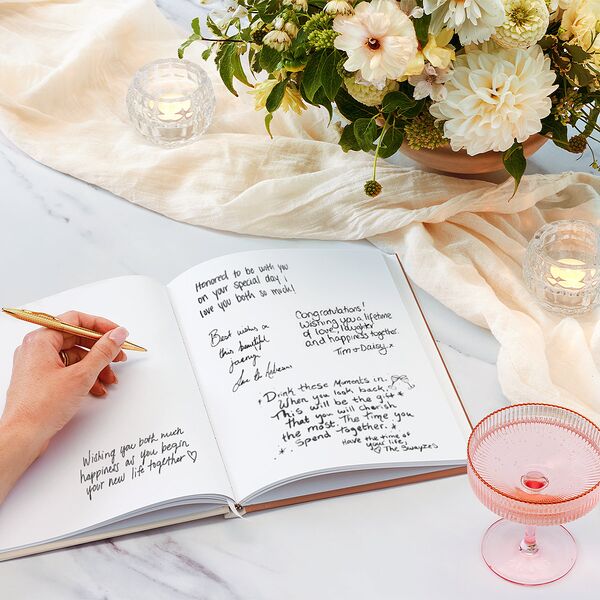 Wishing you both much
happiness as you begin
your new life together ♡
Honored to be with you
on your special day i
love you both so much!
Best wishes on
this beautiful
journey
Congratulations!
Wishing you a lifetime
of love, laughter
and happiness together.
Tim + Daisy x
Drink these moments in.
When you look back,
This will be the gift
that you will cherish
the most. The time you
Spend together.
Have the time of
your life,
♡ The Swayzes